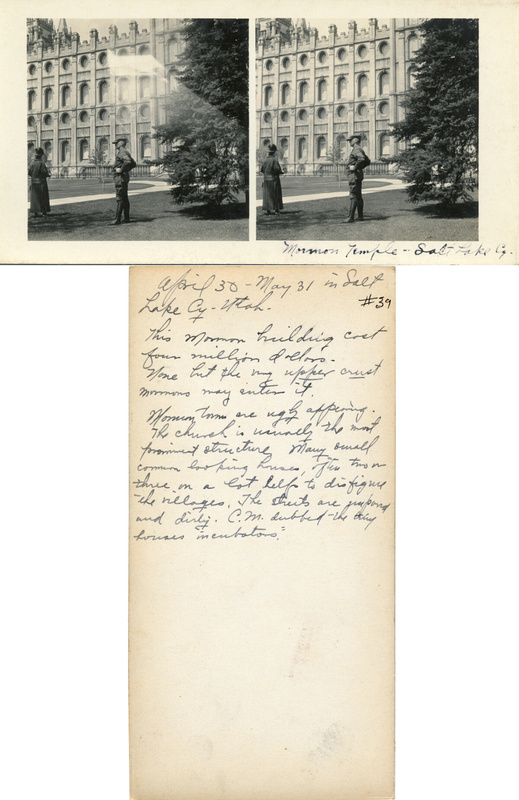 Mormon Temple - Salt Lake Cy.
April 30 - May 31 in Salt
Lake Cy - Utah.
#39
This Mormon building cost
four million dollars.
None but the very upper crust
mormons may enter it.
Mormon towns are ugly appearing.
The church is usually the most
prominent structure. Many small
common looking houses, often two or
three on a lot helps to disfigure
the villages. The streets are
and dirty. C.M. dubbed the tiny
houses "incubators".